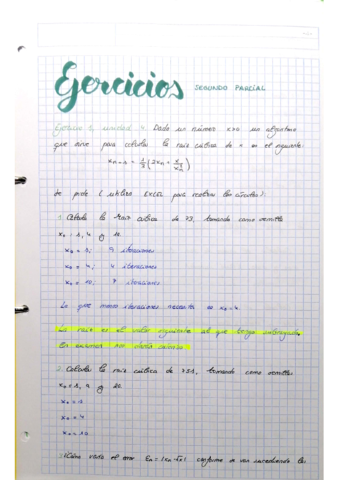 Ejercicios SEGUNDO PARCIAL
Ejercicio 1, unidad 4. Dado un número x>0 un algoritmo
que sirve para calcular la raíz cúbica de x es el siguiente:
xₙ₊₁ = 1/3 (2xₙ + x/xₙ²)
Se pide (utiliza EXCEL para realizar los cálculos):
Calcula la raíz cúbica de 73, tomando como semilla
x₀ = 1, 4 y 10
x₀ = 1; 9 iteraciones
x₀ = 4; 4 iteraciones
x₀ = 10; 7 iteraciones
La que menos iteraciones necesita es x₀=4.
La raíz es el valor siguiente al que tengo subrayado.
En examen nos daría
Calcula la raíz cúbica de 751, tomando como semilla
x₀ = 1, 4 y 10
x₀ = 1
x₀ = 4
x₀ = 10
¿Cómo varía el error conforme se van sucediendo las